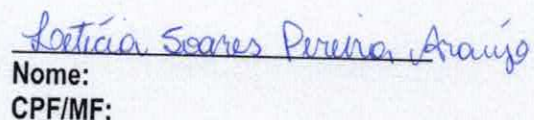 Letícia Soares Pereira Araujo
Nome:
CPF/MF: